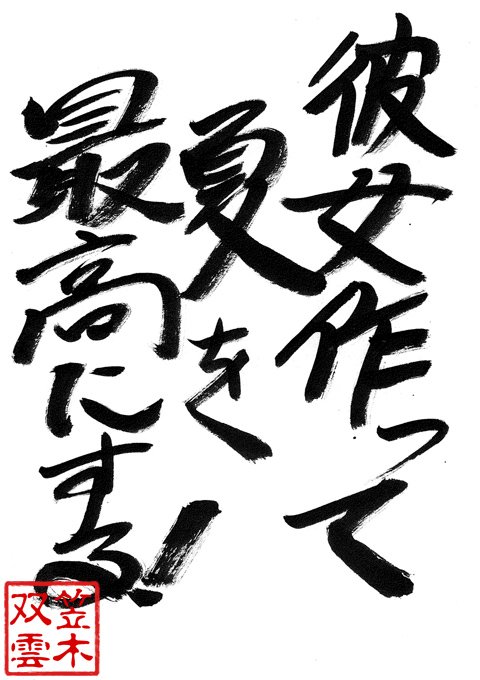 彼女作って
夏を
最高にする!
笠木
双雲